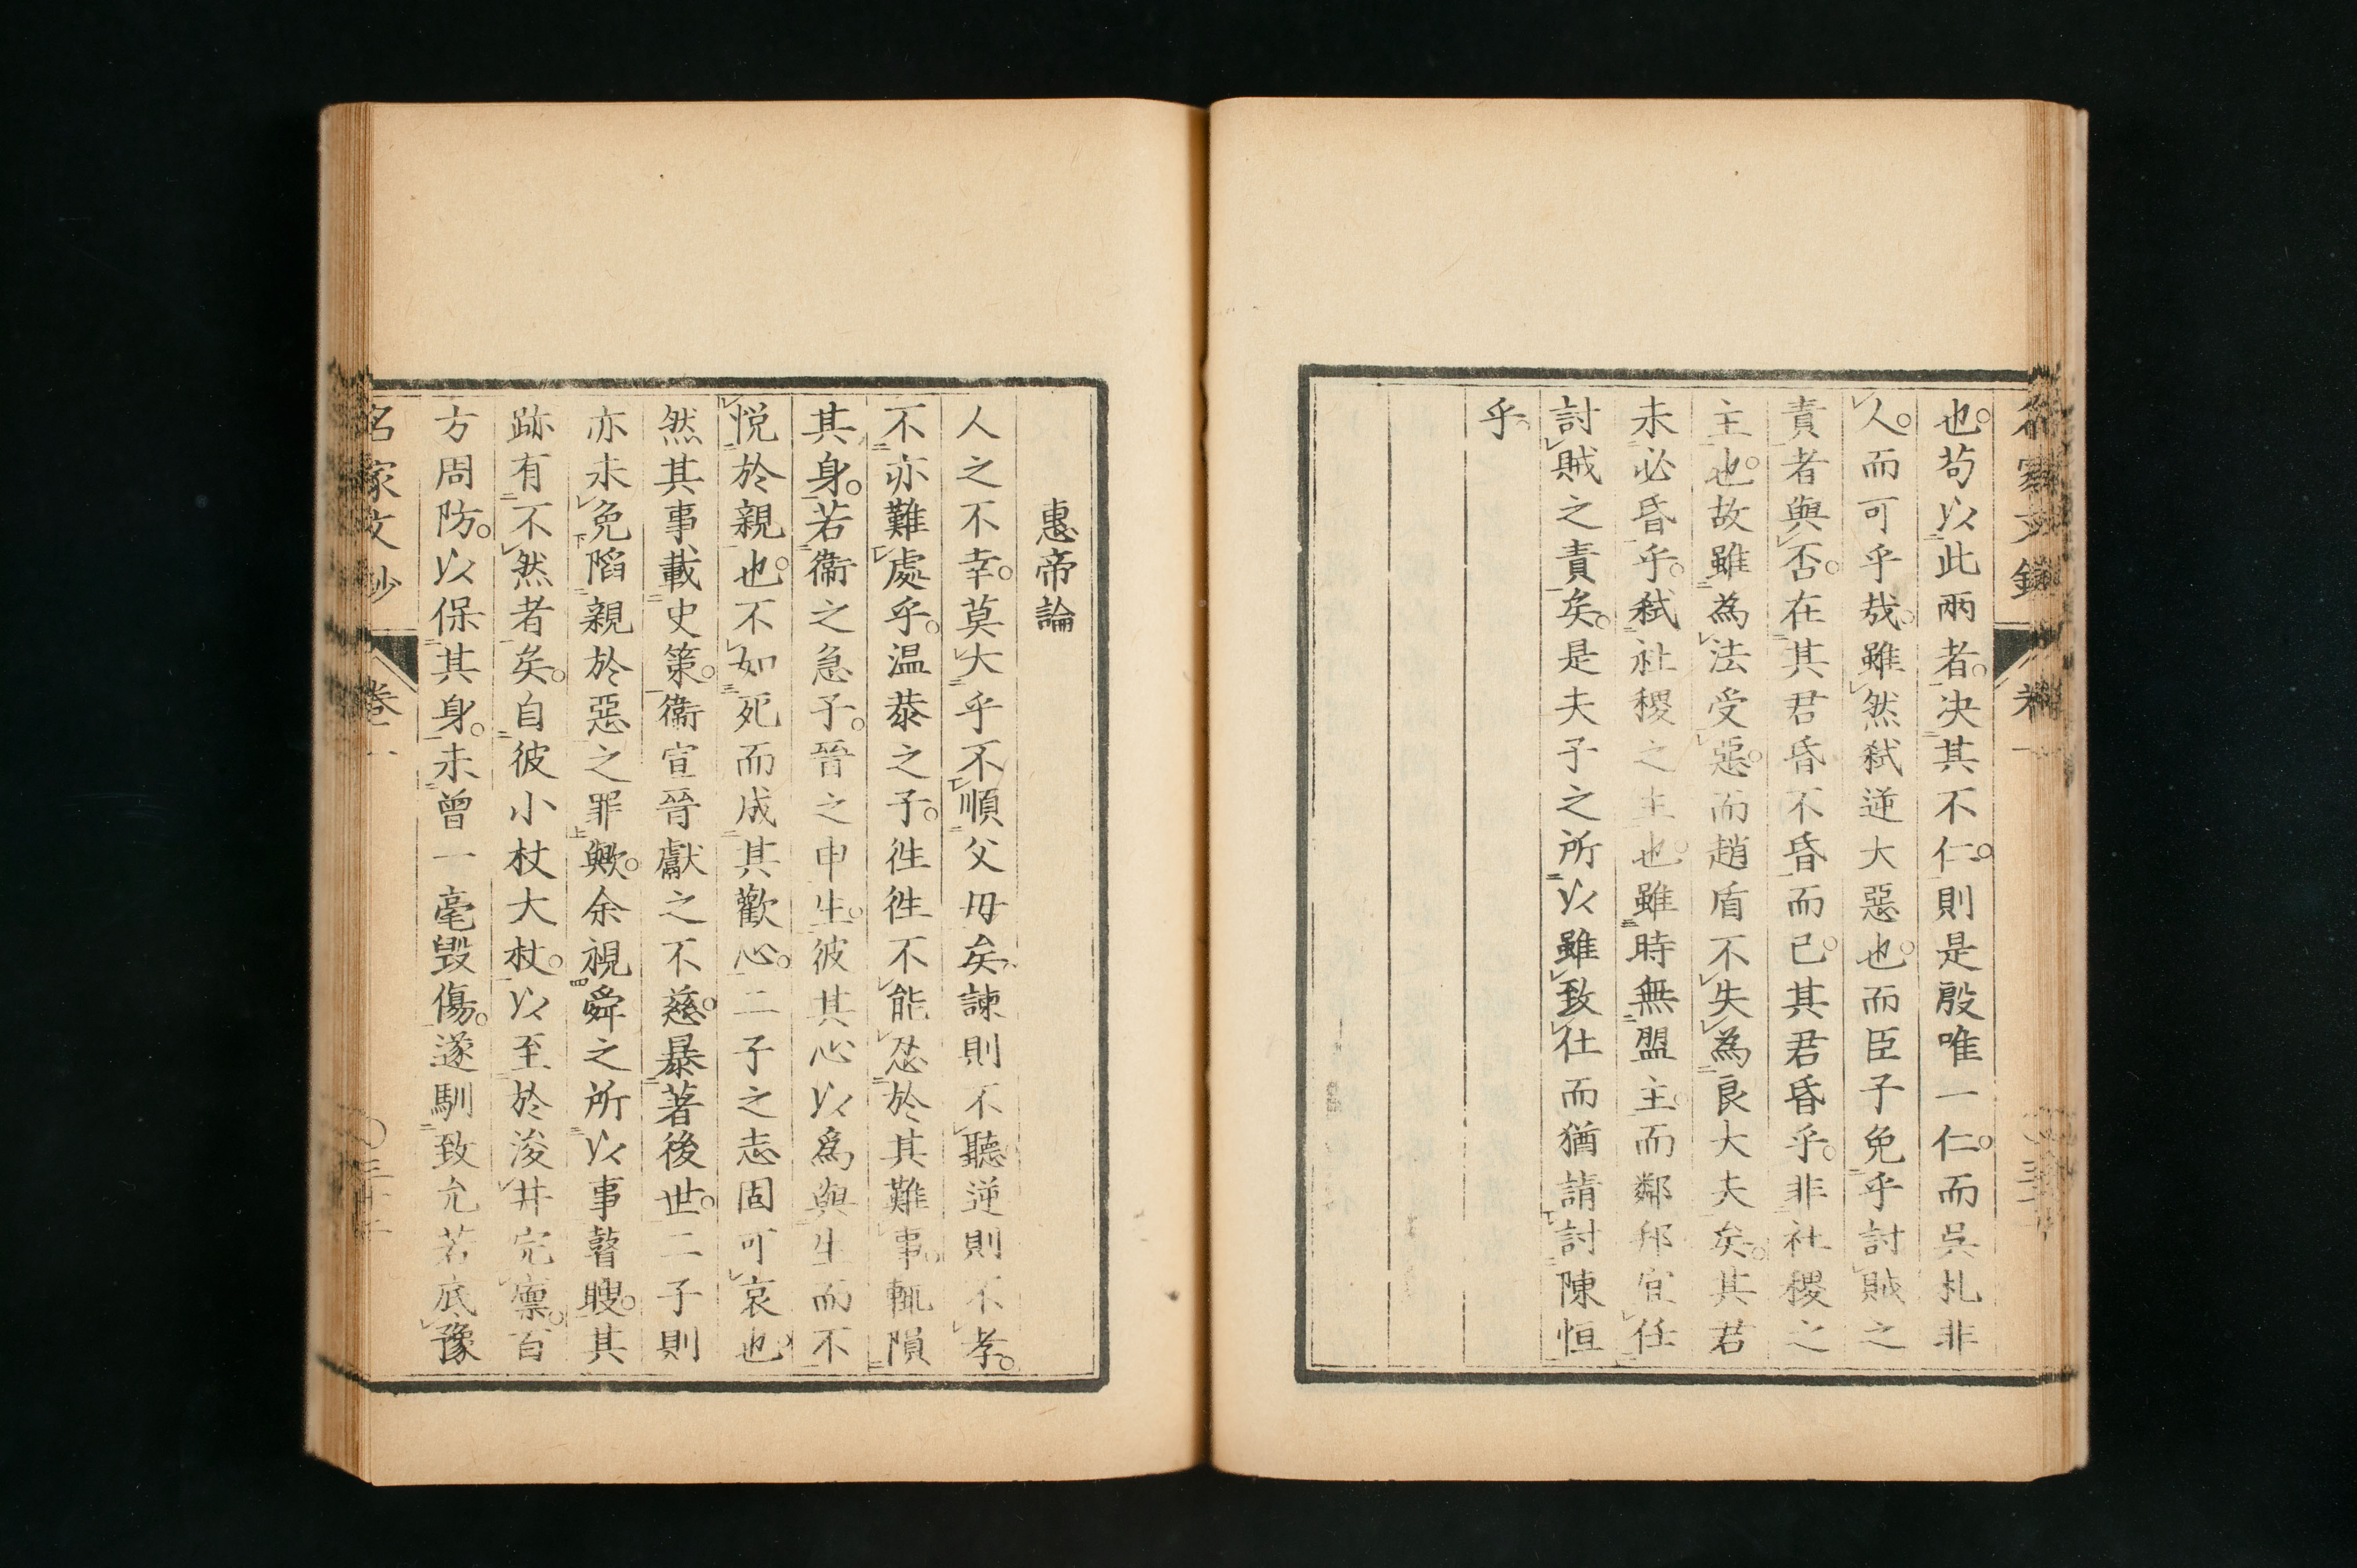 也。苟以此兩者。决其不仁。則是殷唯一仁。而呉札非
人。而可乎哉。雖然弑逆大惡也。而臣子免乎討賊之
責者與否。在其君昏不昏而已。其君昏乎。非社稷之
主也。故雖為法受惡。而趙盾不失為良大夫矣。其君
未必昏乎。弑社稷之主也。雖時無盟主。而鄰邦宜任
討賊之責矣。是夫子之所以雖致仕而猶請討陳恒
乎
惠帝論
人之不幸。莫大乎不順父母矣、諫則不聽逆則不孝。
不亦難處乎。温恭之子。徃徃不能忍於其難事。輒隕
其身。若衞之急子。晉之申生。彼其心以為與生而不
悦於親也。不如死而成其歡心。二子之志固可哀也
然其事載史策。衞宣晉獻之不慈。暴著後世。二子則
亦未免陷親於惡之罪歟。余視舜之所以事瞽瞍。其
跡有不然者矣。自彼小杖大杖。以至於浚井完廩。百
方周防。以保其身。未曾一毫毀傷。遂馴致允若底豫
名家文抄 卷一